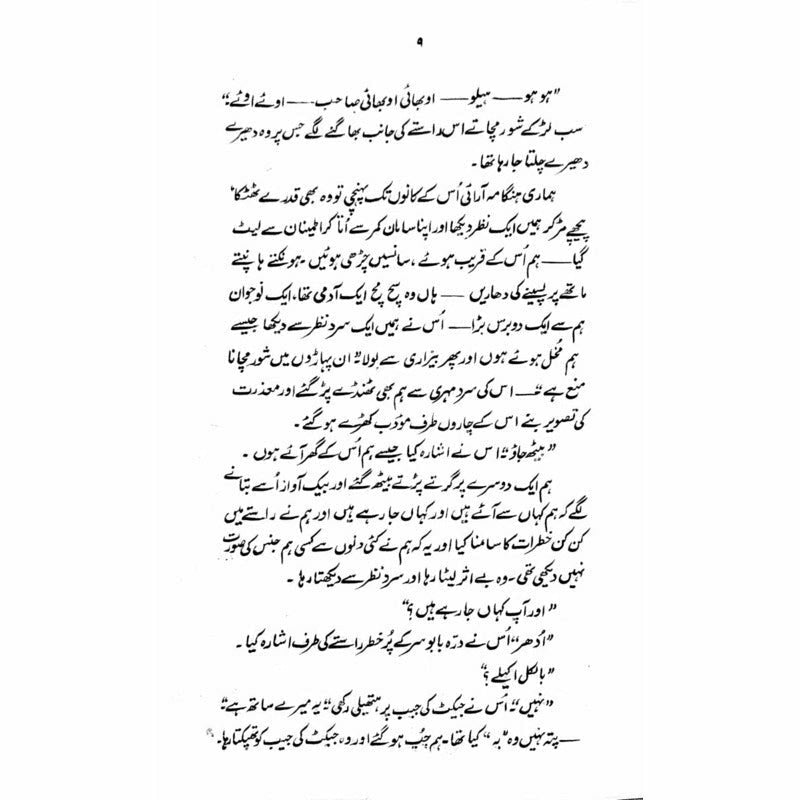 ۹
"ہو ہو —— ہیلو —— او بھائی او بھائی صاحب —— اوئے اوئے"
سب لڑکے شور مچاتے اس راستے کی جانب بھاگنے لگے جس پر وہ دھیرے
دھیرے چلتا جا رہا تھا۔
ہماری ہنگامہ آرائی اُس کے کانوں تک پہنچی تو وہ بھی قدرے ٹھٹکا
پیچھے مڑ کر ہمیں ایک نظر دیکھا اور اپنا سامان کمر سے اُتار کر اطمینان سے لیٹ
گیا —— ہم اُس کے قریب ہوئے، سانسیں چڑھی ہوئیں۔ ہونکتے ہانپتے
ماتھے پر پسینے کی دھاریں —— ہاں وہ سچ مچ ایک آدمی تھا، ایک نوجوان
ہم سے ایک دو برس بڑا —— اُس نے ہمیں ایک سرد نظر سے دیکھا جیسے
ہم مُخل ہوئے ہوں اور پھر بیزاری سے بولا "ان پہاڑوں میں شور مچانا
منع ہے" —— اس کی سرد مہری سے ہم بھی ٹھنڈے پڑ گئے اور معذرت
کی تصویر بنے اس کے چاروں طرف مؤدب کھڑے ہو گئے۔
"بیٹھ جاؤ" اس نے اشارہ کیا جیسے ہم اُس کے گھر آئے ہوں۔
ہم ایک دوسرے پر گرتے پڑتے بیٹھ گئے اور بیک آواز اُسے بتانے
لگے کہ ہم کہاں سے آئے ہیں اور کہاں جا رہے ہیں اور ہم نے راستے میں
کن کن خطرات کا سامنا کیا اور یہ کہ ہم نے کئی دنوں سے کسی ہم جنس کی صورت
نہیں دیکھی تھی۔ وہ بے اثر لیٹا رہا اور سرد نظر سے دیکھتا رہا۔
"اور آپ کہاں جا رہے ہیں؟"
"اُدھر" اُس نے درّہ بابوسر کے پُر خطر راستے کی طرف اشارہ کیا۔
"بالکل اکیلے؟"
"نہیں" اُس نے جیکٹ کی جیب پر ہتھیلی رکھی "یہ میرے ساتھ ہے"
—— پتہ نہیں وہ "یہ" کیا تھا۔ ہم چپ ہو گئے اور وہ جیکٹ کی جیب کو تھپکتا رہا۔